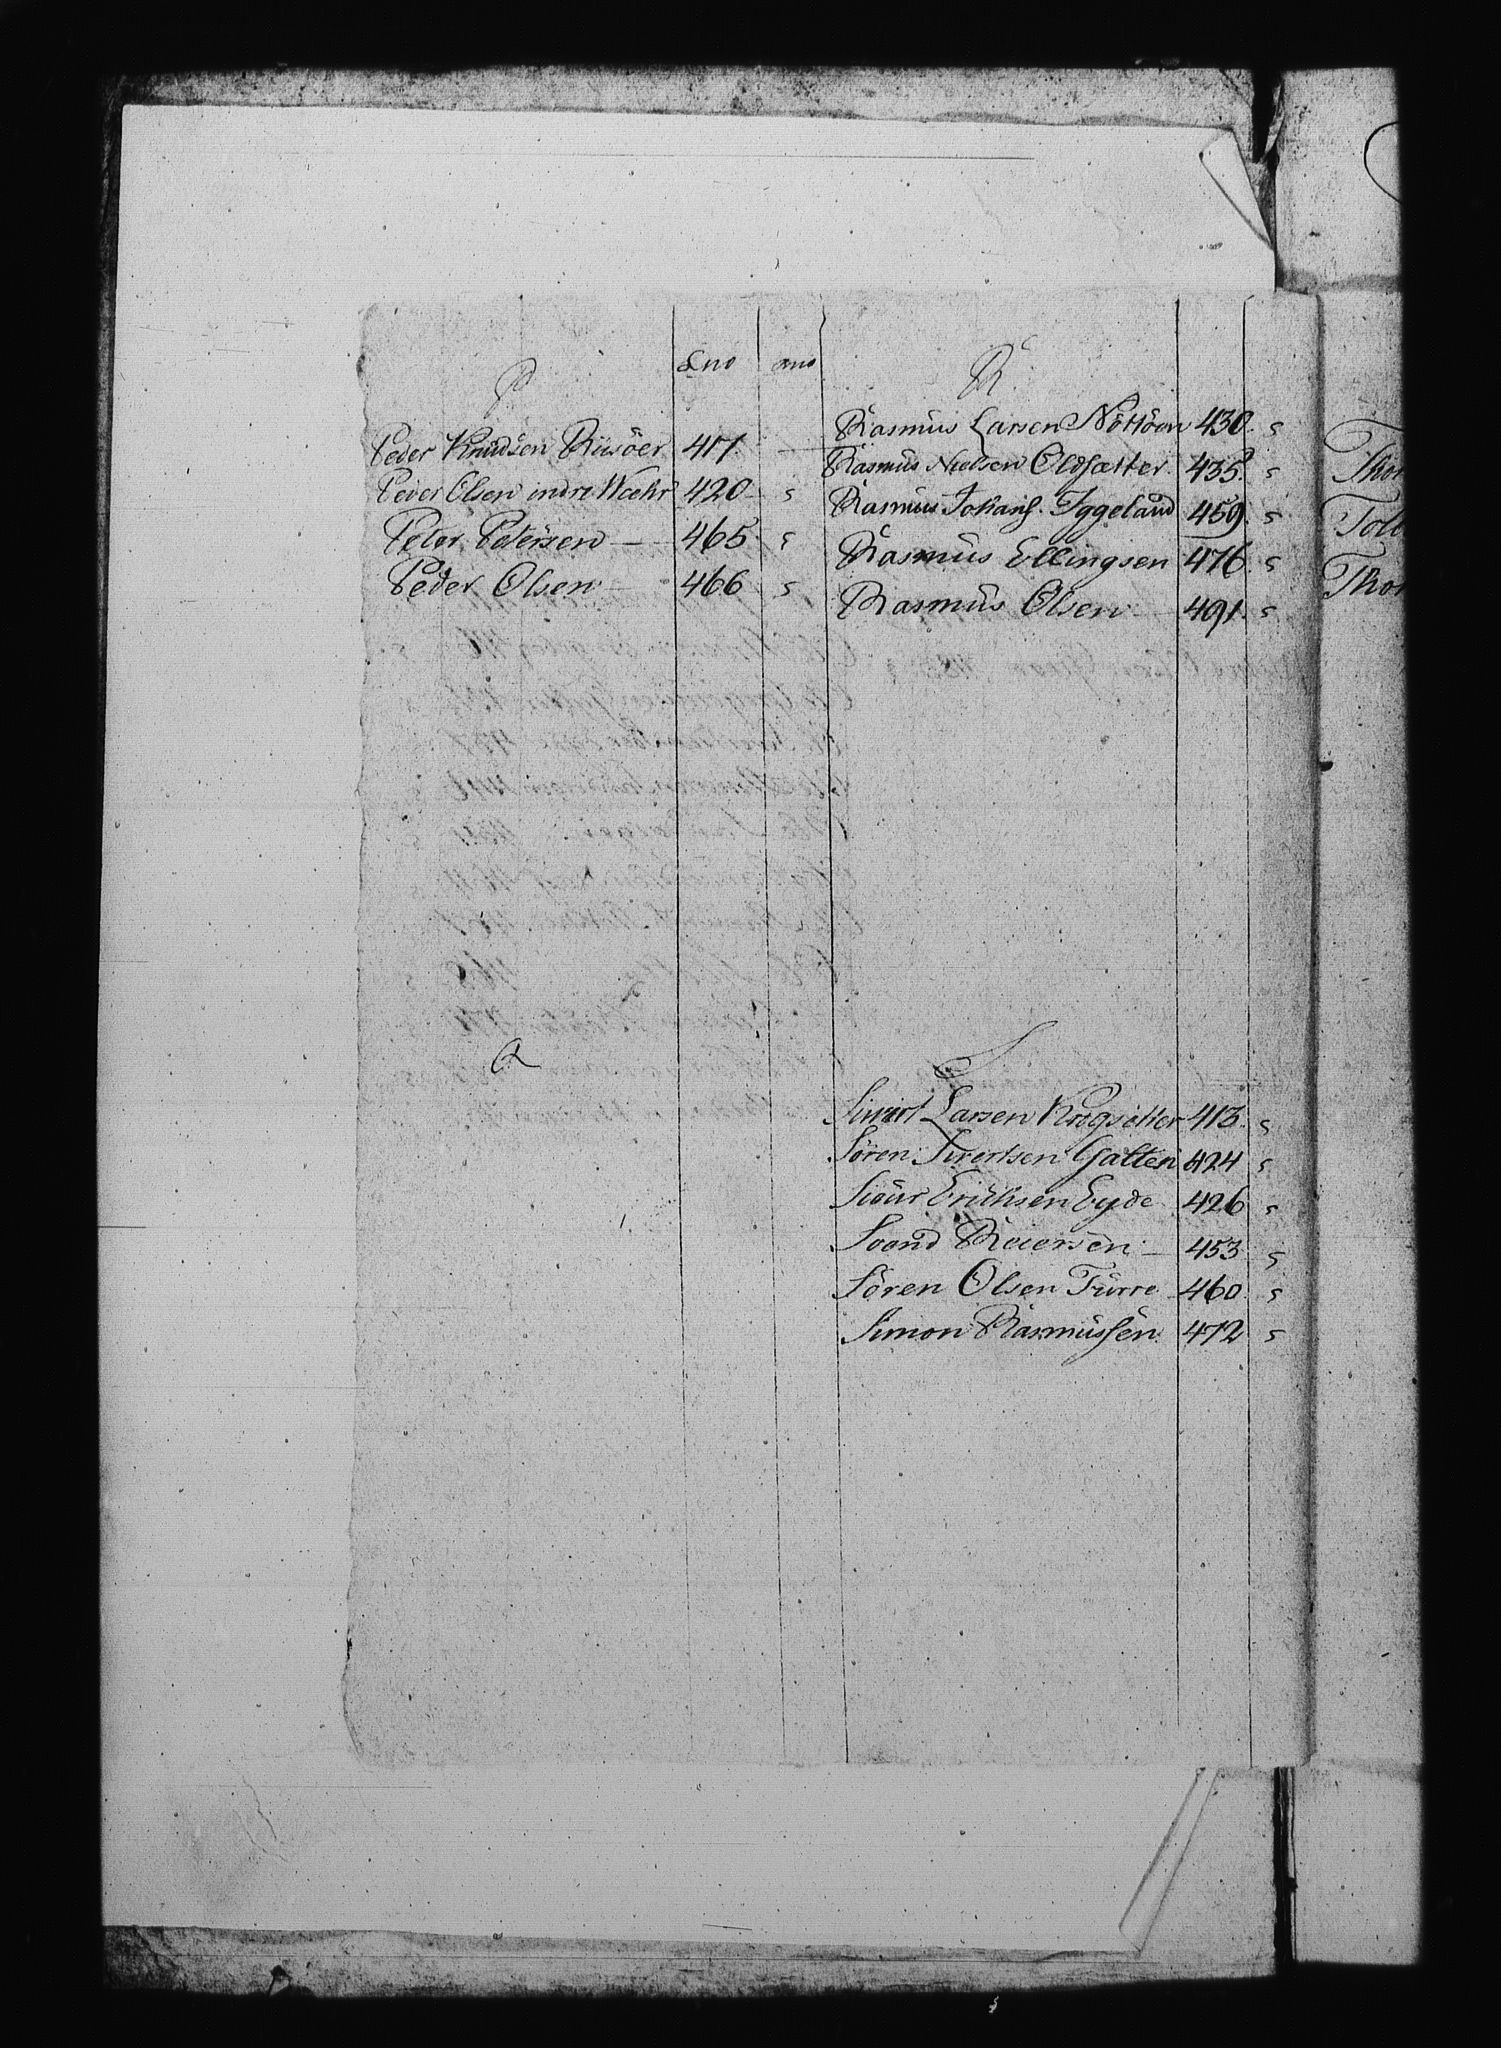 P
Peder Knudsen Riisöer 417.
Peder Olsen indre Waehr 420 s
Peter Petersen 465 s
Peder Olsen 466 s
Q
R
Rasmus Larsen Nöttöen 430. s
Rasmus Nielsen Oldsætter 435. s
Rasmus Johans. Iggeland 459. s
Rasmus Ellingsen 476. s
Rasmus Olsen 491. s
S
Siuert Larsen Krogsetter 413. s
Sören Sivertsen Galten 424 s
Siöur Erichsen Eyde 426 s
Svend Reiersen 453 s
Sören Olsen Furre 460. s
Simon Rasmussen 472 s